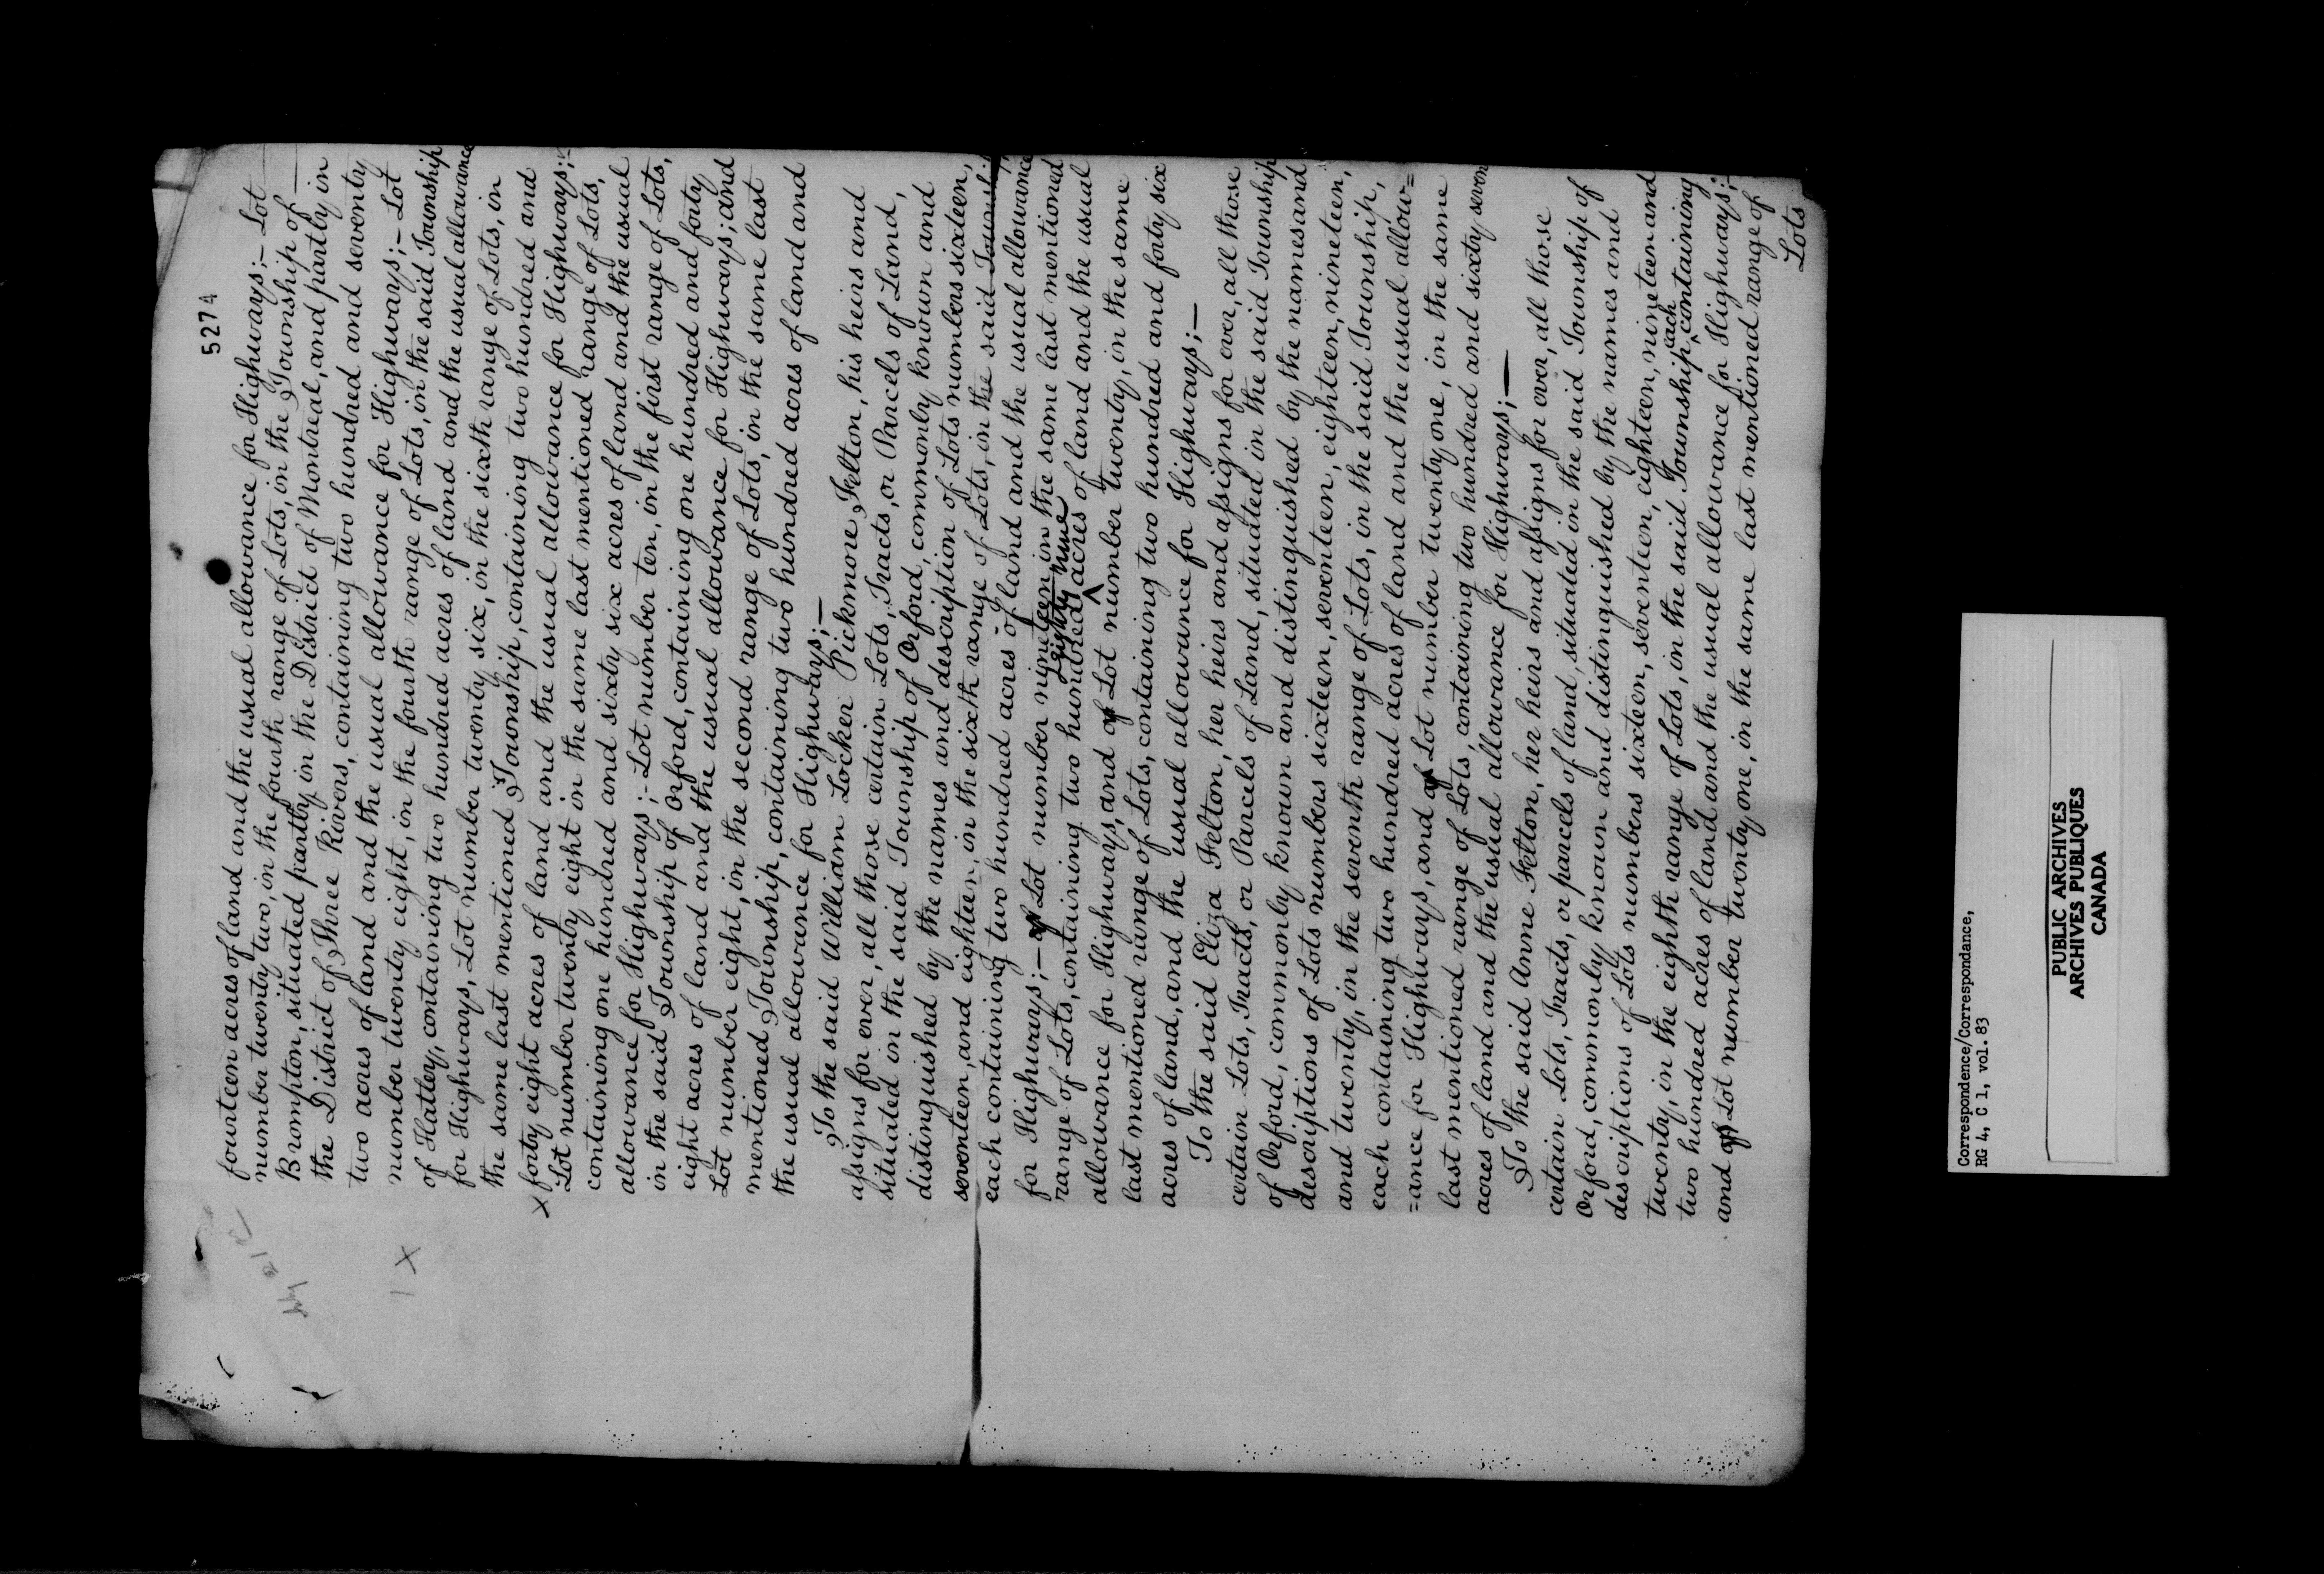 5274
fourteen acres of land and the usual allowance for Highways; – Lot
number twenty two, in the fourth range of Lots, in the Township of
Brompton, situated partly in the District of Montreal, and partly in
the District of Three Rivers, containing two hundred and seventy
two acres of land and the usual allowance for Highways; – Lot
number twenty eight, in the fourth range of Lots, in the said Township
of Hatley, containing two hundred acres of land and the usual allowance
for Highways, Lot number twenty six, in the sixth range of Lots, in
the same last mentioned Township, containing two hundred and
x forty eight acres of land and the usual allowance for Highways; –
Lot number twenty eight in the same last mentioned range of Lots,
containing one hundred and sixty six acres of land and the usual
allowance for Highways; – Lot number ten, in the first range of Lots,
in the said Township of Orford, containing one hundred and forty
eight acres of land and the usual allowance for Highways; and
Lot number eight, in the second range of Lots, in the same last
mentioned Township, containing two hundred acres of land and
the usual allowance for Highways; –
To the said William Locker Pickmore Felton, his heirs and
assigns for ever, all those certain Lots, Tracts, or Parcels of Land,
situated in the said Township of Orford, commonly known and
distinguished by the names and description of Lots numbers sixteen,
seventeen, and eighteen, in the sixth range of Lots, in the said Township;
each containing two hundred acres of land and the usual allowance
for Highways; – of Lot number nineteen in the same last mentioned
range of Lots, containing two hundred eighty nine acres of land and the usual
allowance for Highways, and of Lot number twenty, in the same
last mentioned range of Lots, containing two hundred and forty six
acres of land, and the usual allowance for Highways; –
To the said Eliza Felton, her heirs and assigns for ever, all those
certain Lots, Tracts, or Parcels of Land, situated in the said Township
of Orford, commonly known and distinguished by the names and
descriptions of Lots numbers sixteen, seventeen, eighteen, nineteen,
and twenty, in the seventh range of Lots, in the said Township,
each containing two hundred acres of land and the usual allow=
=ance for Highways, and of Lot number twenty one, in the same
last mentioned range of Lots, containing two hundred and sixty seven
acres of land and the usual allowance for Highways; –
To the said Anne Felton, her heirs and assigns for ever, all those
certain Lots, Tracts, or parcels of land, situated in the said Township of
Orford, commonly known and distinguished by the names and
descriptions of Lots numbers sixteen, seventeen, eighteen, nineteen and
twenty, in the eighth range of Lots, in the said Township, each containing
two hundred acres of land and the usual allowance for Highways; –
and of Lot number twenty one, in the same last mentioned range of
Lots
Correspondence/Correspondance,
RG 4, C 1, vol. 83
PUBLIC ARCHIVES
ARCHIVES PUBLIQUES
CANADA